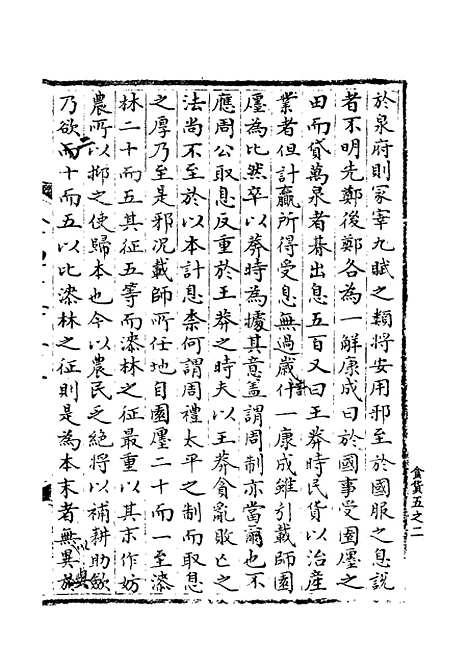 於泉府則冢宰九賦之類將安用邪至於國服之息說
者不明先鄭後鄭各為一解康成曰於國事受園廛之
田而貸萬泉者朞出息五百又曰王莽時民貸以治產
業者但計贏所得受息無過歲什一康成雖引載師園
廛為比然卒以莽時為據其意蓋謂周制亦當爾也不
應周公取息反重於王莽之時夫以王莽貪亂敗亡之
法尚不至於以本計息柰何謂周禮太平之制而取息
之厚乃至是邪況載師所任地自園廛二十而一至漆
林二十而五其征五等而漆林之征最重以其末作妨
農所以抑之使歸本也今以農民乏絕將以補耕助斂
乃欲二十而五以比漆林之征則是為本末者無異於
食貨五之二